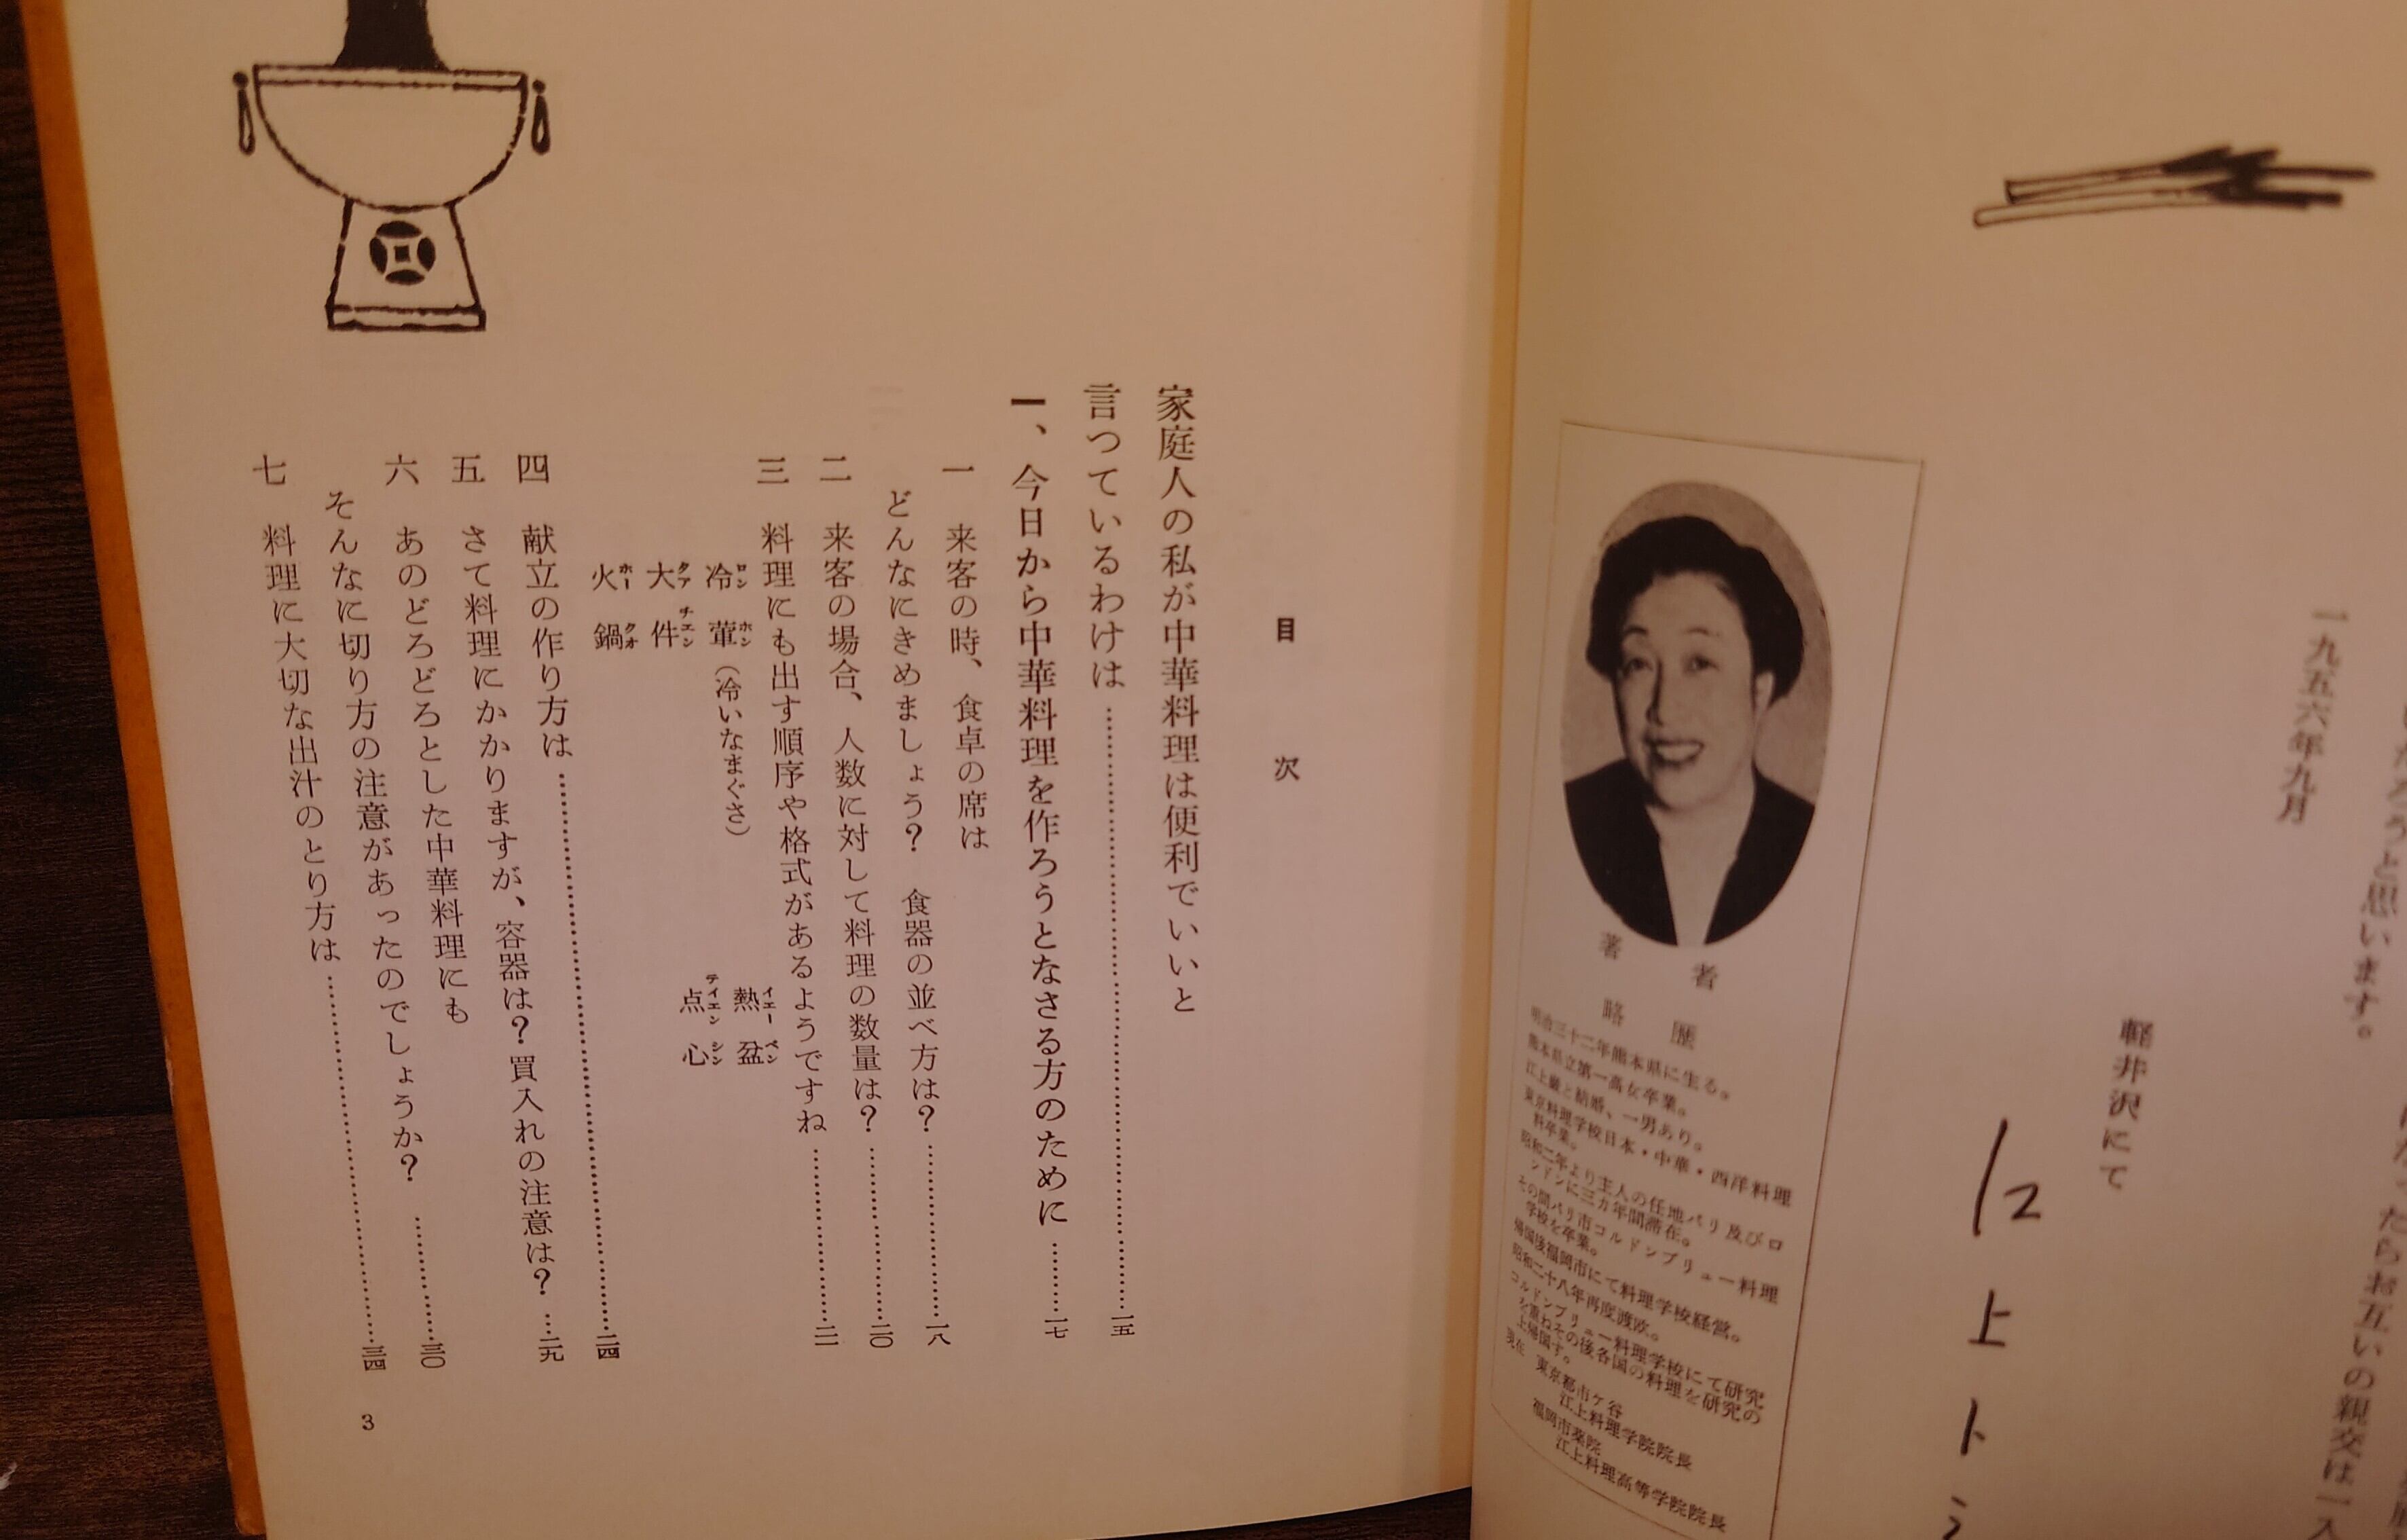 だろうと思います。
たらお互いの親交は一
一九五六年九月
軽井沢にて
江上トミ
著者略歴
明治三十二年熊本県に生る。
熊本県立第一高女卒業。
江上巌と結婚、一男あり。
東京料理学校日本・中華・西洋料理
科卒業。
昭和二年より主人の任地パリ及びロ
ンドンに三カ年間滞在。
その間パリ市コルドンブリュー料理
学校を卒業。
帰国後福岡市にて料理学校経営。
昭和二十八年再度渡欧。
コルドンブリュー料理学校にて研究
を重ねその後各国の料理を研究の
上帰国す。
現在 東京都市ケ谷
江上料理学院院長
福岡市薬院
江上料理高等学院院長
目次
家庭人の私が中華料理は便利でいいと
言つているわけは……一五
一、今日から中華料理を作ろうとなさる方のために……一七
一 来客の時、食卓の席は
どんなにきめましょう? 食器の並べ方は?……一八
二 来客の場合、人数に対して料理の数量は?……二〇
三 料理にも出す順序や格式があるようですね……二一
冷葷(冷いなまぐさ) 熱盆
ロンホン イエーペン
大件 点心
タアチエン テイエンシン
火鍋
ホークオ
四 献立の作り方は……二四
五 さて料理にかかりますが、容器は?買入れの注意は?…二九
六 あのどろどろとした中華料理にも
そんなに切り方の注意があったのでしょうか?……三〇
七 料理に大切な出汁のとり方は……三四
3